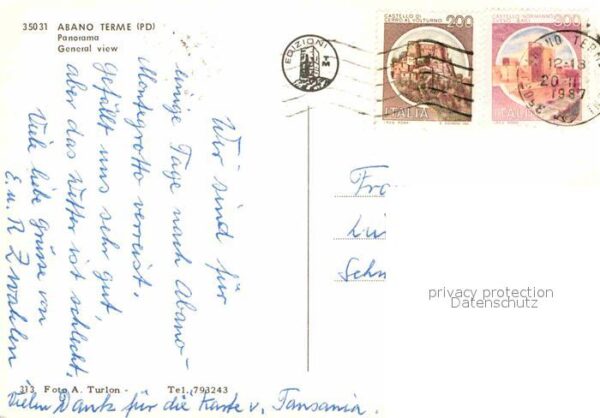 35031 ABANO TERME (PD)
Panorama
General view
EDIZIONI
CASTELLO DI
CERRO AL VOLTURNO
200
ITALIA
CASTELLO NORMANNO
SVEVO BARI
300
ITALIA
NO TERME
12-18
20
1987
Wir sind für
einige Tage nach Abano-
Montegrotto verreist.
Gefällt uns sehr gut,
aber das Wetter ist schlecht.
Viele liebe Grüsse von
E. u. R Zwahlen
Fra
Schn
privacy protection
Datenschutz
313 Foto A. Turlon - Tel. 793243
Vielen Dank für die Karte v. Tansania.